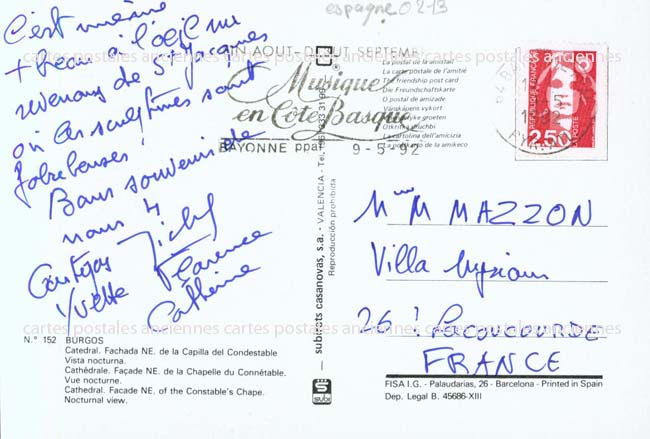 espagne 0213
c'est même
+ beau à l'œil nu
revenons de St Jacques
où les sculptures sont
fabuleuses !
Bons souvenirs de
nous 4
Michel
Yvette Florence
Cathérine
FIN AOUT-DEBUT SEPTEMB
Musique
en Côte Basque
BAYONNE PPAL 9-5-92
La postal de la amistad
La carte postale de l'amitié
The friendship post card
Die Freundschaftskarte
O postal de amizade
Vänskapens vykort
La cartolina dell'amicizia
La poŝtkarto de la amikeco
REPUBLIQUE FRANÇAISE
2,50
LA POSTE
Mme M MAZZON
Villa
26
FRANCE
subirats casanovas, s.a. - VALENCIA - Tel.
Reproducción prohibida
S
subi
cartes postales anciennes cartes postales anciennes cartes postales anciennes
N.° 152 BURGOS
Catedral. Fachada NE. de la Capilla del Condestable
Vista nocturna.
Cathédrale. Façade NE. de la Chapelle du Connétable.
Vue nocturne.
Cathedral. Facade NE. of the Constable's Chape.
Nocturnal view.
FISA I.G. - Palaudarias, 26 - Barcelona - Printed in Spain
Dep. Legal B. 45686-XIII